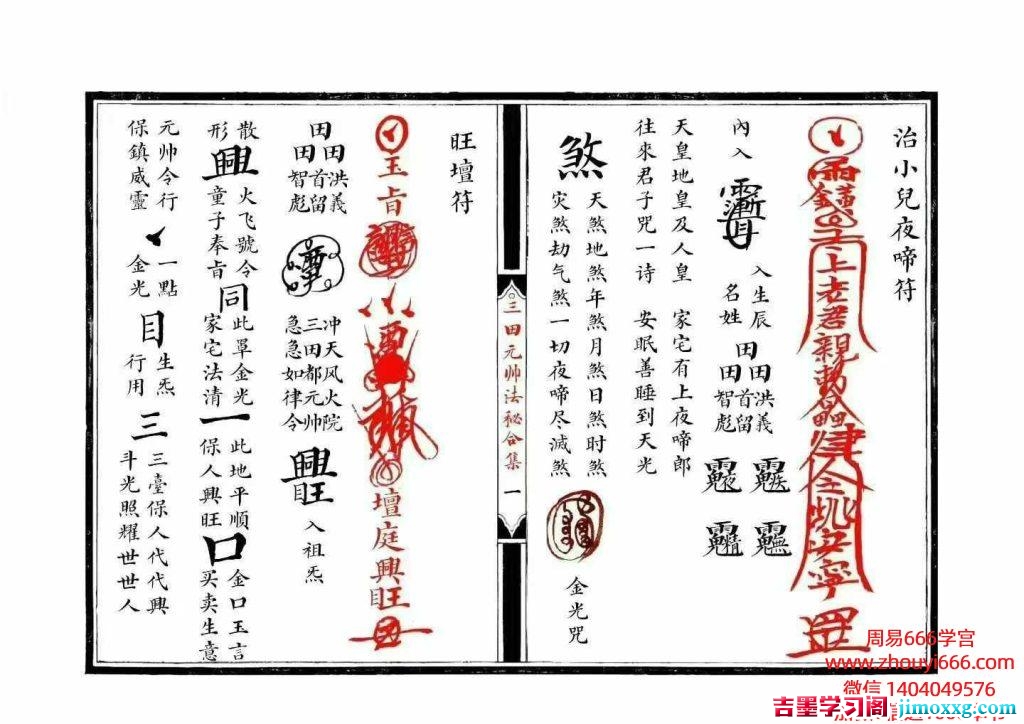 治小兒夜啼符
上老君親勅
安寧罡
內入
入生辰
名姓
田洪義
田首留
田智彪
天皇地皇及人皇 家宅有上夜啼郎
往來君子咒一诗 安眠善睡到天光
煞
天煞地煞年煞月煞日煞时煞
灾煞劫气煞一切夜啼尽滅煞
金光咒
三田元帅法秘合集 一
旺壇符
玉旨
壇庭興旺
田洪義
田首留
田智彪
冲天风火院
三田都元帅
急急如律令
興旺
入祖炁
散形
興
火飞號令
童子奉旨
同
此罩金光
家宅法清
一
此地平順
保人興旺
口
金口玉言
买卖生意
元帅令行
保鎮威靈
一點
金光
目
生炁
行用
三
三臺保人代代興
斗光照耀世世人
周易666学宫
www.zhouyi666.com
微信 1404049576
吉墨学习阁 jimoxxg.com